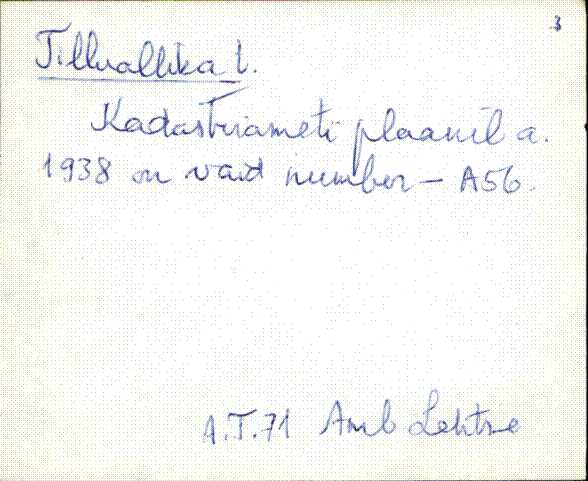 3
Tilluallika t.
Kadastriameti plaanil a.
1938 on vaid number – A56.
A.T.71 Amb Lehtse